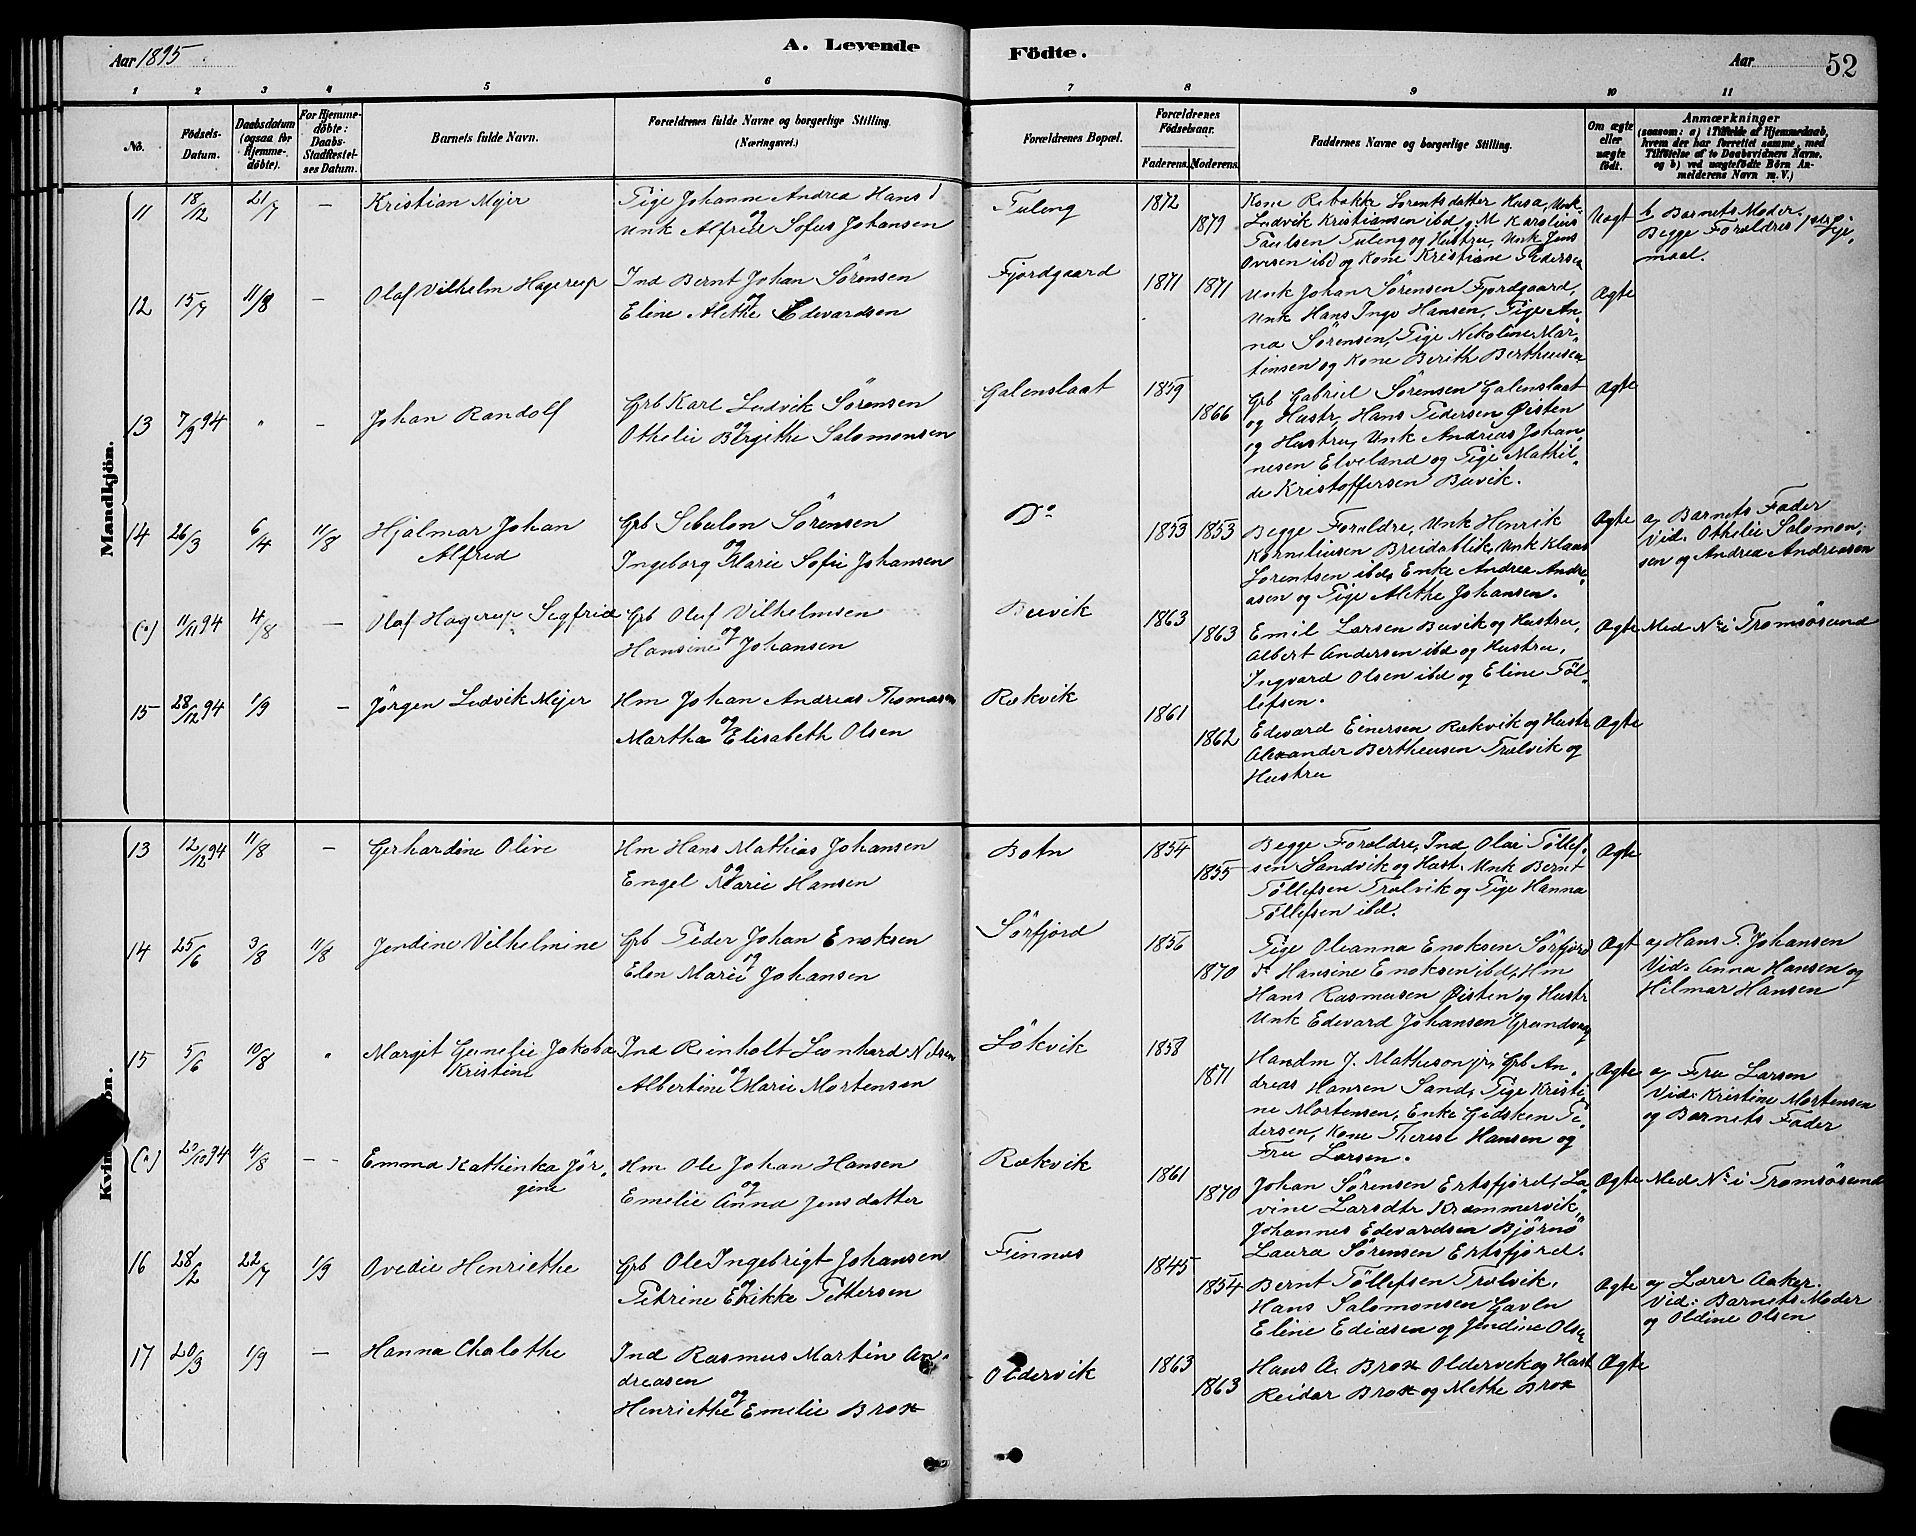 Aar 1895. A. Levende Födte. Aar 52
1 2 3 4 5 6 7 8 9 10 11
No. Födsels-Datum. Daabsdatum (ogsaa for Hjemme-döbte). For Hjemme-döbte: Daabs-Stadfestel-ses Datum. Barnets fulde Navn. Forældrenes fulde Navne og borgerlige Stilling. (Næringsvei.) Forældrenes Bopæl. Forældrenes Födselsaar. Faderens. Moderens. Faddernes Navne og borgerlige Stilling. Om ægte eller uægte födt. Anmærkninger (saasom: a) i Tilfælde af Hjemmedaab, hvem der har forrettet samme, med Tilföielse af to Daabsvidners Navne, og b) ved uægtefödte Börn An-melderens Navn m. V.)
Mandkjön.
11 18/12 21/7 — Kristian Mejer
Pige Johanne Andrea Hans d
og
Unk Alfred Sofus Johansen
Tuleng 1872 1879
Kone Rebekke Lorentsdatter Husa, Unk
Ludvik Kristiansen ibd og M Karolius
Paulsen Tuleng og Hustru, Unk Jens
Ovesen ibd og Kone Kristiane Pedersen
Uagt b Barnets Moder.
Begge Foraldres 1ste Leje-
maal.
12 15/7 11/8 — Olaf Vilhelm Hagerup
Ind Bernt Johan Sörensen
og
Eline Alethe Edvardsen
Fjordgaard 1871 1871
Unk Johan Sörensen Fjordgaard,
Unk Hans Inge Hansen, Pige An-
na Sörensen, Pige Nekoline Mar-
tinsen og Kone Berith Bertheusen
Ægte
13 7/9 94 " — Johan Randolf
Grb Karl Ludvik Sörensen
og
Othelie Birgithe Salomonsen
Galenslaat 1859 1866
Grb Gabriel Sörensen Galenslaat
og Hustr, Hans Pedersen Øisten
og Hustru, Unk Andreas Johan-
nesen Elveland og Pige Mathil-
de Kristoffersen Buvik.
Ægte
14 26/3 6/4 11/8 Hjalmar Johan
Alfred
Grb Sebulon Sörensen
og
Ingeborg Marie Sofie Johansen
Do 1853 1853
Begge Foraldre, Unk Henrik
Korneliusen Breidablik, Unk Klaus
Lorentsen ibd, Enke Andrea Andre-
asen og Pige Alethe Johansen.
Ægte a, Barnets Fader
Vid: Othelie Salomon-
sen og Andrea Andreasen
(") 11/11 94 4/8 — Olaf Hagerup Segfrid
Grb Oluf Vilhelmsen
og
Hansine Johansen
Buvik 1863 1863
Emil Larsen Buvik og Hustru,
Albert Andersen ibd og Hustru,
Ingvard Olsen ibd og Eline Töl-
lefsen.
Ægte Med No i Tromsösund
15 28/12 94 1/9 — Jörgen Ludvik Mejer
Hm Johan Andreas Thomasen
og
Martha Elisabeth Olsen
Rekvik 1861 1862
Edvard Einersen Rekvik og Hustr
Alexander Bertheusen Trolvik og
Hustru
Ægte
Kvindekjön.
13 12/12 94 11/8 — Gerhardine Olive
Hm Hans Mathias Johansen
og
Engel Marie Hansen
Botn 1854 1855
Begge Foraldre, Ind Olai Töllef-
sen Sandvik og Hust. Unk Bernt
Töllefsen Trolvik og Pige Hanna
Töllefsen ibd.
Ægte
14 25/6 3/8 11/8 Jendine Vilhelmine
Grb Peder Johan Enoksen
og
Elen Marie Johansen
Sörfjord 1856 1870
Pige Oleanna Enoksen Sörfjord
do Hansine Enoksen ibd, Hm
Hans Rasmusen Øisten og Hustr
Unk Edvard Johansen Grundvag
Ægt a, Hans P. Johansen
Vid: Anna Hansen og
Hilmar Hansen
15 5/6 10/8 " Margit Gunelie Jakoba
Kristine
Ind Reinholt Leonhard Nilsen
og
Albertine Marie Mortensen
Lökvik 1858 1871
Handm J. Matheson jr, Grb An-
dreas Hansen Sand, Pige Kristi-
ne Mortensen, Enke Gidsken Pe-
dersen, Kone Therese Hansen og
Fru Larsen.
Ægte a, Fru Larsen
Vid: Kristine Mortensen
og Barnets Fader
(") 20/10 94 4/8 — — Emma Kathinka Jör-
gine
Hm Ole Johan Hansen
og
Emelie Anna Jensdatter
Rekvik 1861 1870
Johan Sörensen Ertsfjord, La-
vine Larsdtr Kræmmervik,
Johannes Edvardsen Bjornö
Laura Sörensen Ertsfjord.
Ægte Med No i Tromsösund
16 28/2 22/7 1/9 Ovedie Henriethe
Grb Ole Ingebrigt Johansen
og
Petrine Erikke Pettersen
Finnes 1845 1854
Bernt Töllefsen Trolvik,
Hans Salomonsen Gavlen
Eline Ediasen og Jendine Olsen
Ægte a, Lærer Aaker.
Vid: Barnets Moder
og Oldine Olsen
17 20/3 1/9 — Hanna Chalothe
Ind Rasmus Martin An-
dreasen
og
Henriethe Emelie Brox
Oldervik 1863 1863
Hans A. Brox Oldervik og Hust
Reidar Brox og Methe Brox
Ægte